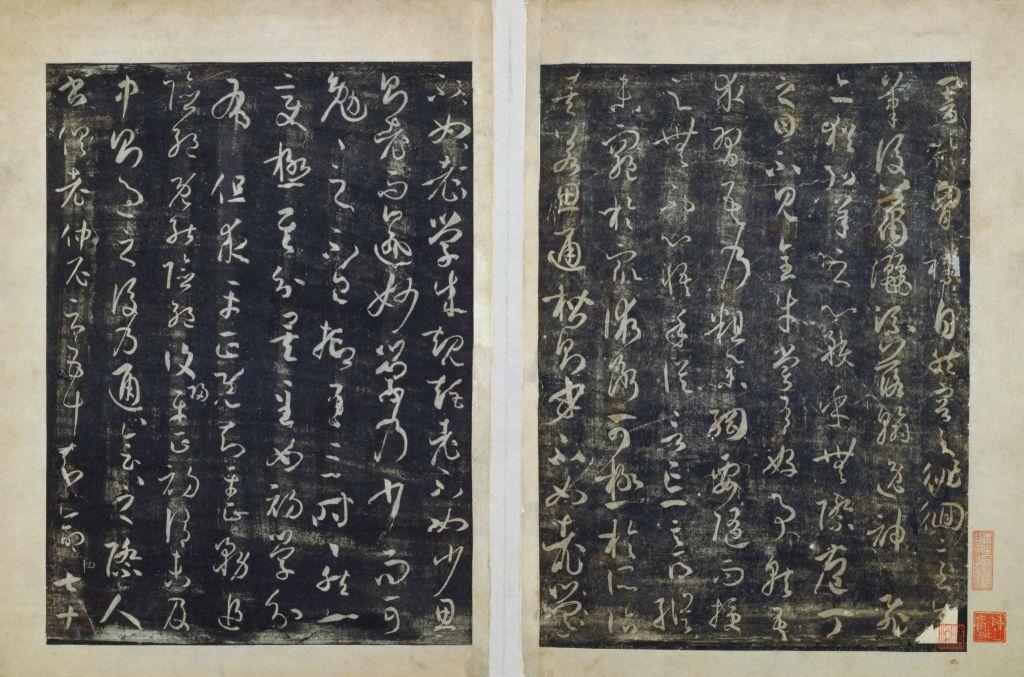 襟自然容與徘徊意先
筆後瀟灑流落翰逸神飛
亦猶弘羊之心預乎無際庖丁
之目不見全牛嘗有好事就吾
求習吾乃粗舉綱要隨而授
之無不心悟手從言忘意得縱
未窮於衆術斷可極於所詣
矣若思通楷則少不如老學
不如老學成規矩老不如少思
則老而逾妙學乃少而可
勉〻之不已抑有三時〻然一
變極其分矣至如初學分
布但求平正既知平正務追
險絕既能險絕復歸平正初謂未及
中則過之後乃通會〻之際人
書俱老仲尼云五十知命七十